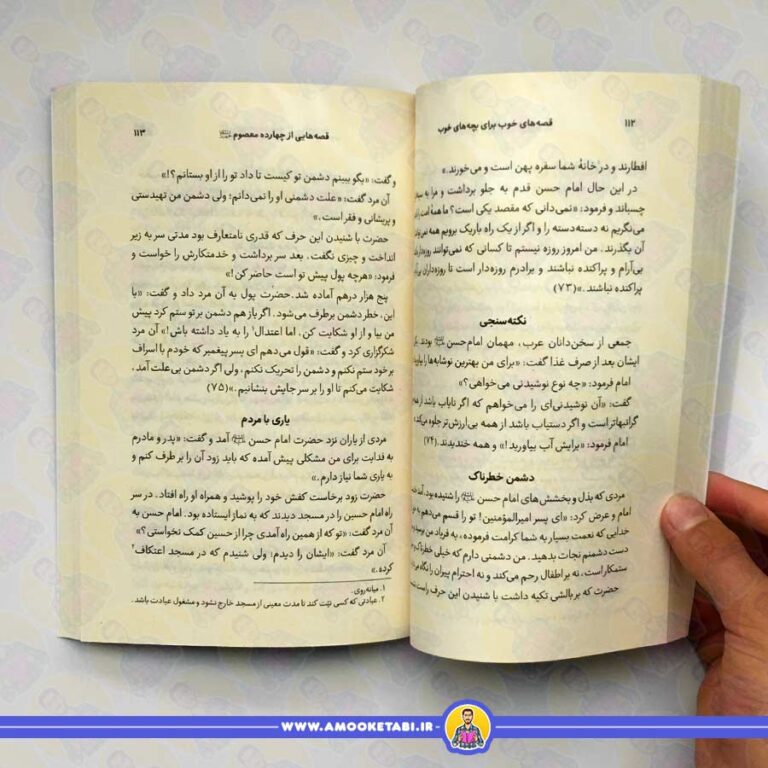 ۱۱۲ قصه‌های خوب برای بچه‌های خوب
افطارند و در خانهٔ شما سفره پهن است و می‌خورند.»
در این حال امام حسن قدم به جلو برداشت و مرا به
چسباند و فرمود: «نمی‌دانی که مقصد یکی است؟ ما همه امت
می‌نگریم نه دسته‌دسته را و اگر از یک راه باریک برویم همه
آن بگذرند. من امروز روزه نیستم تا کسانی که نمی‌توانند
بی‌آرام و پراکنده نباشند و برادرم روزه‌دار است تا روزه‌داران
پراکنده نباشند.»(۷۳)
نکته‌سنجی
جمعی از سخن‌دانان عرب، مهمان امام‌حسن بودند.
ایشان بعد از صرف غذا گفت: «برای من بهترین نوشابه‌ها را
امام فرمود: «چه نوع نوشیدنی می‌خواهی؟»
گفت: «آن نوشیدنی‌ای را می‌خواهم که اگر نایاب باشد از همه
گرانبهاتر است و اگر دستیاب باشد از همه بی‌ارزش‌تر جلوه می‌کند.»
امام فرمود: «برایش آب بیاورید!» و همه خندیدند.(۷۴)
دشمن خطرناک
مردی که بذل و بخشش‌های امام حسن را شنیده بود، آمد
امام و عرض کرد: «ای پسر امیرالمؤمنین! تو را قسم می‌دهم
خدایی که نعمت بسیار به شما کرامت فرموده، به فریاد من
دست دشمنم نجات بدهید. من دشمنی دارم که خیلی
ستمکار است، نه بر اطفال رحم می‌کند و نه احترام پیران را نگاه
حضرت که بر بالشی تکیه داشت با شنیدن این حرف راست
قصه‌هایی از چهارده معصوم ۱۱۳
و گفت: «بگو ببینم دشمن تو کیست تا داد تو را از او بستانم؟!»
آن مرد گفت: «علت دشمنی او را نمی‌دانم؛ ولی دشمن من تهیدستی
و پریشانی و فقر است.»
حضرت با شنیدن این حرف که قدری نامتعارف بود مدتی سر به زیر
انداخت و چیزی نگفت. بعد سر برداشت و خدمتکارش را خواست و
فرمود: «هرچه پول پیش تو است حاضر کن!»
پنج هزار درهم آماده شد. حضرت پول به آن مرد داد و گفت: «با
این، خطر دشمن برطرف می‌شود. اگر باز هم دشمن بر تو ستم کرد پیش
من بیا و از او شکایت کن. اما اعتدال۱ را به یاد داشته باش!» آن مرد
شکرگزاری کرد و گفت: «قول می‌دهم ای پسر پیغمبر که خودم با اسراف
بر خود ستم نکنم و دشمن را تحریک نکنم، ولی اگر دشمن بی‌علت آمد،
شکایت می‌کنم تا او را بر سر جایش بنشانیم.»(۷۵)
یاری با مردم
مردی از یاران نزد حضرت امام حسن آمد و گفت: «پدر و مادرم
به فدایت برای من مشکلی پیش آمده که باید زود آن را بر طرف کنم و
به یاری شما نیاز دارم.»
حضرت زود برخاست کفش خود را پوشید و همراه او راه افتاد. در سر
راه امام حسین را در مسجد دیدند که به نماز ایستاده بود. امام حسن به
آن مرد گفت: «تو که از همین راه آمدی چرا از حسین کمک نخواستی؟»
آن مرد گفت: «ایشان را دیدم؛ ولی شنیدم که در مسجد اعتکاف۲
کرده.»
۱. میانه‌روی.
۲. عبادتی که کسی نیّت کند تا مدت معینی از مسجد خارج نشود و مشغول عبادت باشد.
WWW.AMOOKETABI.IR